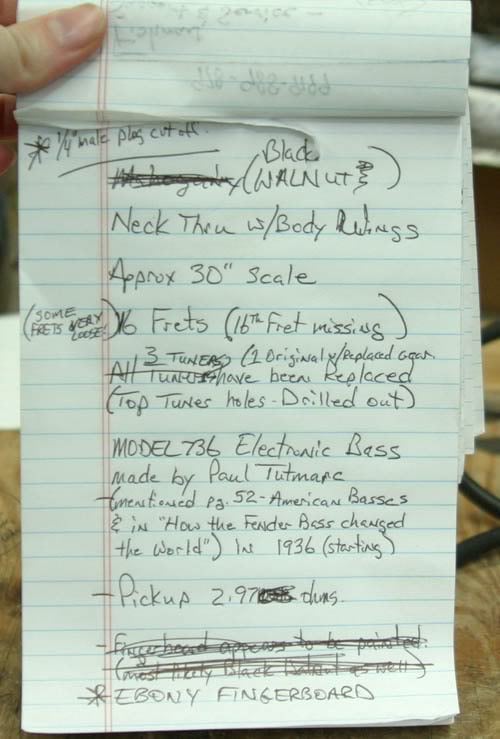 & Service -
* 1/4" male plug cut off.
Mahogany (Black WALNUT)
Neck Thru w/Body Wings
Approx 30" Scale
(SOME FRETS VERY LOOSE!) 16 Frets (16th Fret missing)
3 TUNERS (1 Original w/Replaced Gear
All TUNERS have been Replaced
(Top Tunes holes - Drilled out)
MODEL 736 Electronic Bass
made by Paul Tutmarc
- (mentioned pg. 52 - American Basses
& in "How the Fender Bass changed
the World") in 1936 (starting)
- Pickup 2.97 ohms.
- Fingerboard appears to be painted.
(most likely Black Walnut as well)
* EBONY FINGERBOARD